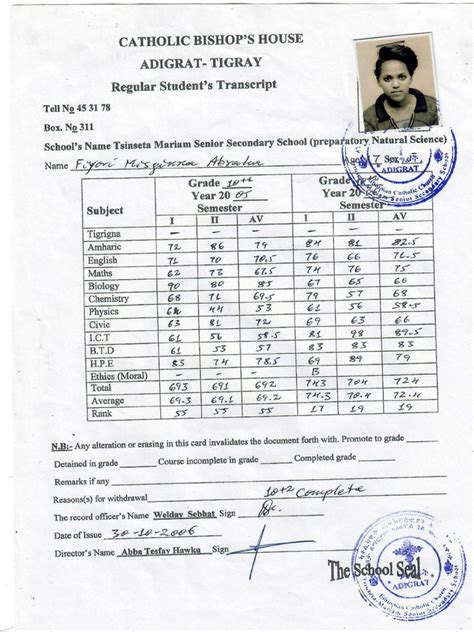 CATHOLIC BISHOP'S HOUSE
ADIGRAT- TIGRAY
Regular Student's Transcript
Tell No 45 31 78
Box. No 311
School's Name Tsinseta Mariam Senior Secondary School (preparatory Natural Science)
Name Fiyori Misginna Abraha Age 17 Sex
ADIGRAT
Ethiopian Catholic Church
Tsinseta-Mariam Senior Secondary School
Subject Grade 10+1 Grade
Year 2005 Year 20
Semester Semester
I II AV I II AV
Tigrigna
Amharic 72 86 79 84 81 82.5
English 71 70 70.5 76 66 71.5
Maths 62 73 67.5 74 76 75
Biology 90 80 85 67 65 66
Chemistry 68 71 69.5 79 57 68
Physics 62 44 53 61 61
Civic 63 81 72 69 63 66
I.C.T 61 56 58.5 81 98 89.5
B.T.D 61 53 57 83 83 83
H.P.E 83 74 78.5 69 89 79
Ethics (Moral) B
Total 693 691 692 743 704 724
Average 69.3 69.1 69.2 74.3 70.4 72.4
Rank 55 55 55 17 19 19
N.B:- Any alteration or erasing in this card invalidates the document forth with. Promote to grade
Detained in grade Course incomplete in grade Completed grade
Remarks if any
Reasons(s) for withdrawal 10+2 Complete
The record officer's Name Welday Sebhat Sign
Date of Issue 30-10-2006
Director's Name Abba Tesfay Hawku Sign
The School Seal
ADIGRAT
Ethiopian Catholic Church
Tsinseta-Mariam Senior Secondary School